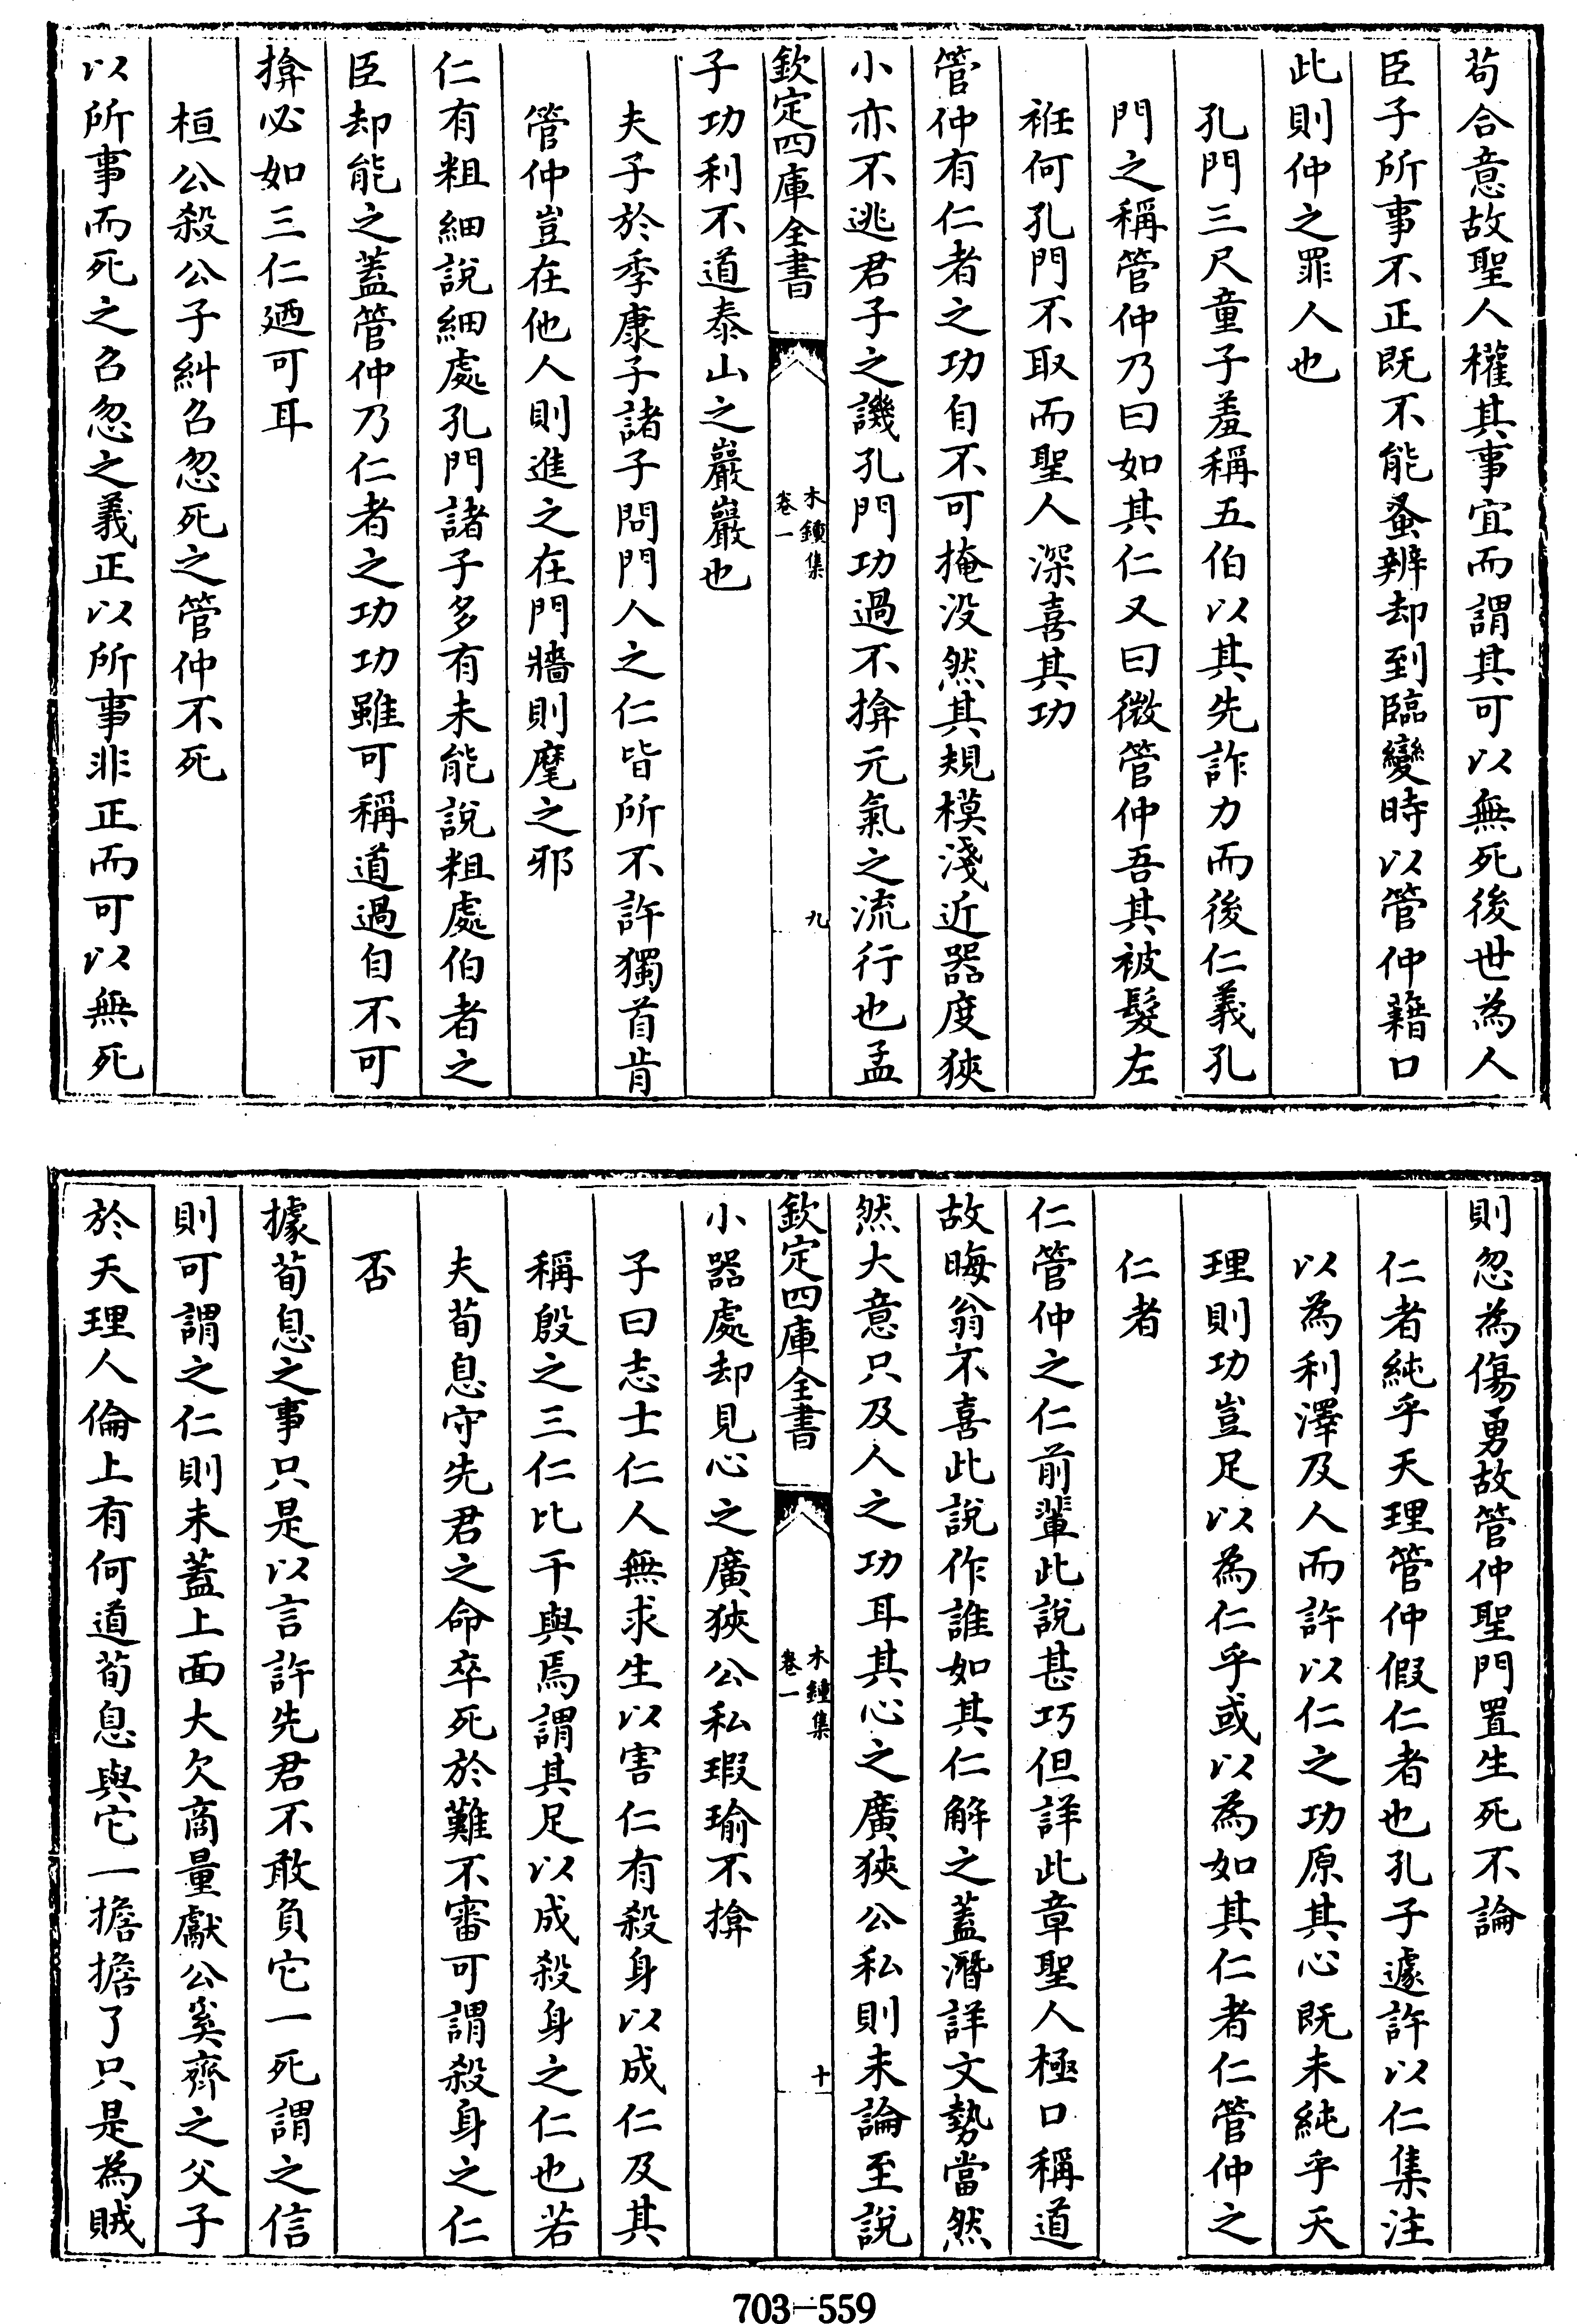 苟合意故聖人權其事宜而謂其可以無死後世為人
臣子所事不正既不能蚤辨却到臨變時以管仲籍口
此則仲之罪人也
孔門三尺童子羞稱五伯以其先詐力而後仁義孔
門之稱管仲乃曰如其仁又曰微管仲吾其被髮左
袵何孔門不取而聖人深喜其功
管仲有仁者之功自不可掩没然其規模淺近器度狹
小亦不逃君子之譏孔門功過不揜元氣之流行也孟
欽定四庫全書
木鍾集
卷一
九
子功利不道泰山之巖巖也
夫子於季康子諸子問門人之仁皆所不許獨首肯
管仲豈在他人則進之在門牆則麾之邪
仁有粗細說細處孔門諸子多有未能說粗處伯者之
臣却能之蓋管仲乃仁者之功功雖可稱道過自不可
揜必如三仁廼可耳
桓公殺公子糾召忽死之管仲不死
以所事而死之召忽之義正以所事非正而可以無死
則忽為傷勇故管仲聖門置生死不論
仁者純乎天理管仲假仁者也孔子遽許以仁集注
以為利澤及人而許以仁之功原其心既未純乎天
理則功豈足以為仁乎或以為如其仁者仁管仲之
仁者
仁管仲之仁前輩此說甚巧但詳此章聖人極口稱道
故晦翁不喜此說作誰如其仁解之蓋潛詳文勢當然
然大意只及人之功耳其心之廣狹公私則未論至說
欽定四庫全書
木鍾集
卷一
十
小器處却見心之廣狹公私瑕瑜不揜
子曰志士仁人無求生以害仁有殺身以成仁及其
稱殷之三仁比干與焉謂其足以成殺身之仁也若
夫荀息守先君之命卒死於難不審可謂殺身之仁
否
據荀息之事只是以言許先君不敢負它一死謂之信
則可謂之仁則未蓋上面大欠商量獻公奚齊之父子
於天理人倫上有何道荀息與它一擔擔了只是為賊
703-559